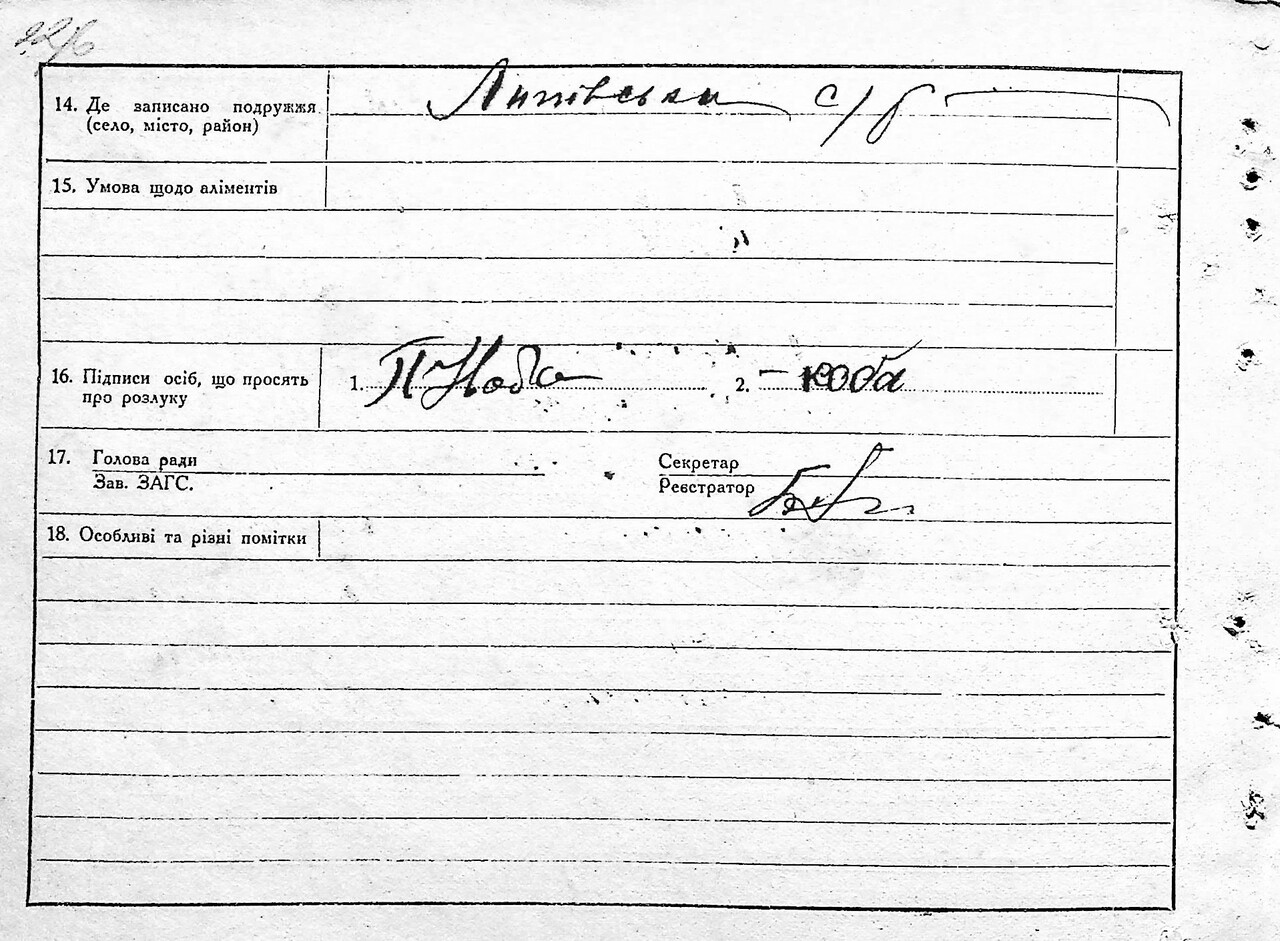 14. Де записано подружжя
(село, місто, район)
с/р
15. Умова щодо аліментів
"
16. Підписи осіб, що просять
про розлуку
1. П Коба 2. – коба
17. Голова ради
Зав. ЗАГС.
Секретар
Реєстратор
18. Особливі та різні помітки